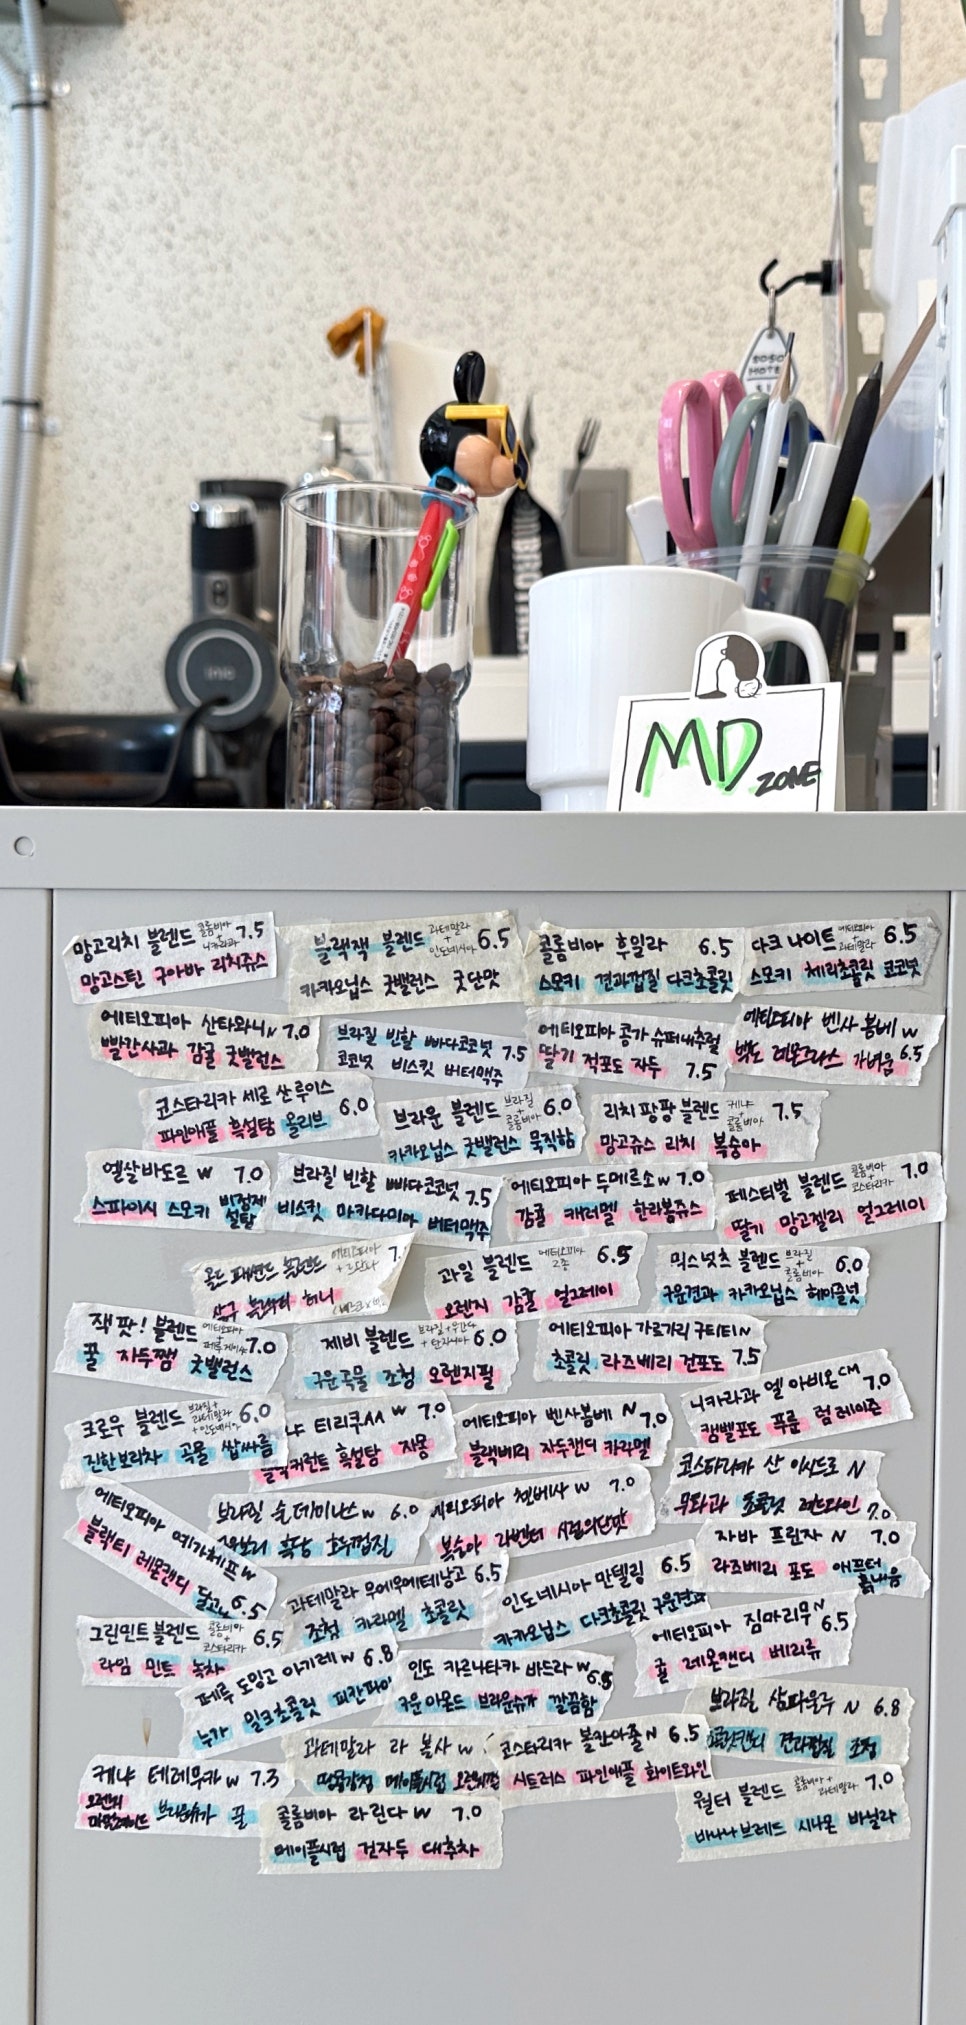 SOSO
MOTEL
MD ZONE
망고리치 블렌드 콜롬비아 + 니카라과 7.5
망고스틴 구아바 리치쥬스
블랙잭 블렌드 과테말라 + 인도네시아 6.5
카카오닙스 굿밸런스 굿단맛
콜롬비아 후일라 6.5
스모키 견과껍질 다크초콜릿
다크 나이트 에티오피아 + 과테말라 6.5
스모키 체리초콜릿 코코넛
에티오피아 산타와니 N 7.0
빨간사과 감귤 굿밸런스
브라질 빈할 빠다코코넛 7.5
코코넛 비스킷 버터맥주
에티오피아 콩가 슈퍼내추럴
딸기 적포도 자두 7.5
에티오피아 벤사 봄베 W
백도 레몬그라스 가벼움 6.5
코스타리카 세로 산 루이스 6.0
파인애플 흑설탕 올리브
브라운 블렌드 브라질 + 콜롬비아 6.0
카카오닙스 굿밸런스 묵직함
리치팡팡 블렌드 케냐 + 콜롬비아 7.5
망고쥬스 리치 복숭아
엘살바도르 W 7.0
스파이시 스모키 비정제 설탕
브라질 빈할 빠다코코넛 7.5
비스킷 마카다미아 버터맥주
에티오피아 두메르소 W 7.0
감귤 캐러멜 한라봉쥬스
페스티벌 블렌드 콜롬비아 + 코스타리카 7.0
딸기 망고젤리 얼그레이
올드 패션드 블렌드 에티오피아 7.
살구 허니
과일 블렌드 에티오피아 2종 6.5
오렌지 감귤 얼그레이
믹스넛츠 블렌드 브라질 + 콜롬비아 6.0
구운견과 카카오닙스 헤이즐넛
잭팟! 블렌드 에티오피아 + 7.0
꿀 자두쨈 굿밸런스
제비 블렌드 브라질 + 우간다 + 탄자니아 6.0
구운곡물 조청 오렌지필
에티오피아 가르가리 구티티 N
초콜릿 라즈베리 건포도 7.5
크로우 블렌드 브라질 + 과테말라 + 인도네시아 6.0
진한보리차 곡물 쌉싸름
냐 티리쿠 AA W 7.0
블랙커런트 흑설탕 자몽
에티오피아 벤사봄베 N 7.0
블랙베리 자두캔디 카라멜
니카라과 엘 아비온 CM 7.0
캠벨포도 푸룬 럼레이즌
에티오피아 예가체프 W
블랙티 레몬캔디 달고나 6.5
브라질 술 데 미나스 W 6.0
흑당 호두껍질
에티오피아 첼베사 W 7.0
복숭아 라벤더 시럽의단맛
코스타리카 산 이시드로 N
무화과 초콜릿 레드와인 7.0
자바 프린자 N 7.0
라즈베리 포도 애프터 흙내음
과테말라 우에우에테낭고 6.5
조청 카라멜 초콜릿
인도네시아 만델링 6.5
카카오닙스 다크초콜릿 구운견과
그린민트 블렌드 콜롬비아 + 코스타리카 6.5
라임 민트 녹차
에티오피아 짐마리무 N 6.5
귤 레몬캔디 베리류
페루 도밍고 아기레 W 6.8
누가 밀크초콜릿 피칸파이
인도 카르나타카 바드라 W 6.5
구운아몬드 브라운슈가 깔끔함
브라질 상파울루 N 6.8
견과껍질 조청
과테말라 라 볼사 W
땅콩강정 메이플시럽 오렌지껍
코스타리카 볼칸아줄 N 6.5
시트러스 파인애플 화이트와인
케냐 테레무카 W 7.3
오렌지 마말레이드 브라운슈가 꿀
월터 블렌드 콜롬비아 + 과테말라 7.0
바나나브레드 시나몬 바닐라
콜롬비아 라 린다 W 7.0
메이플시럽 건자두 대추차